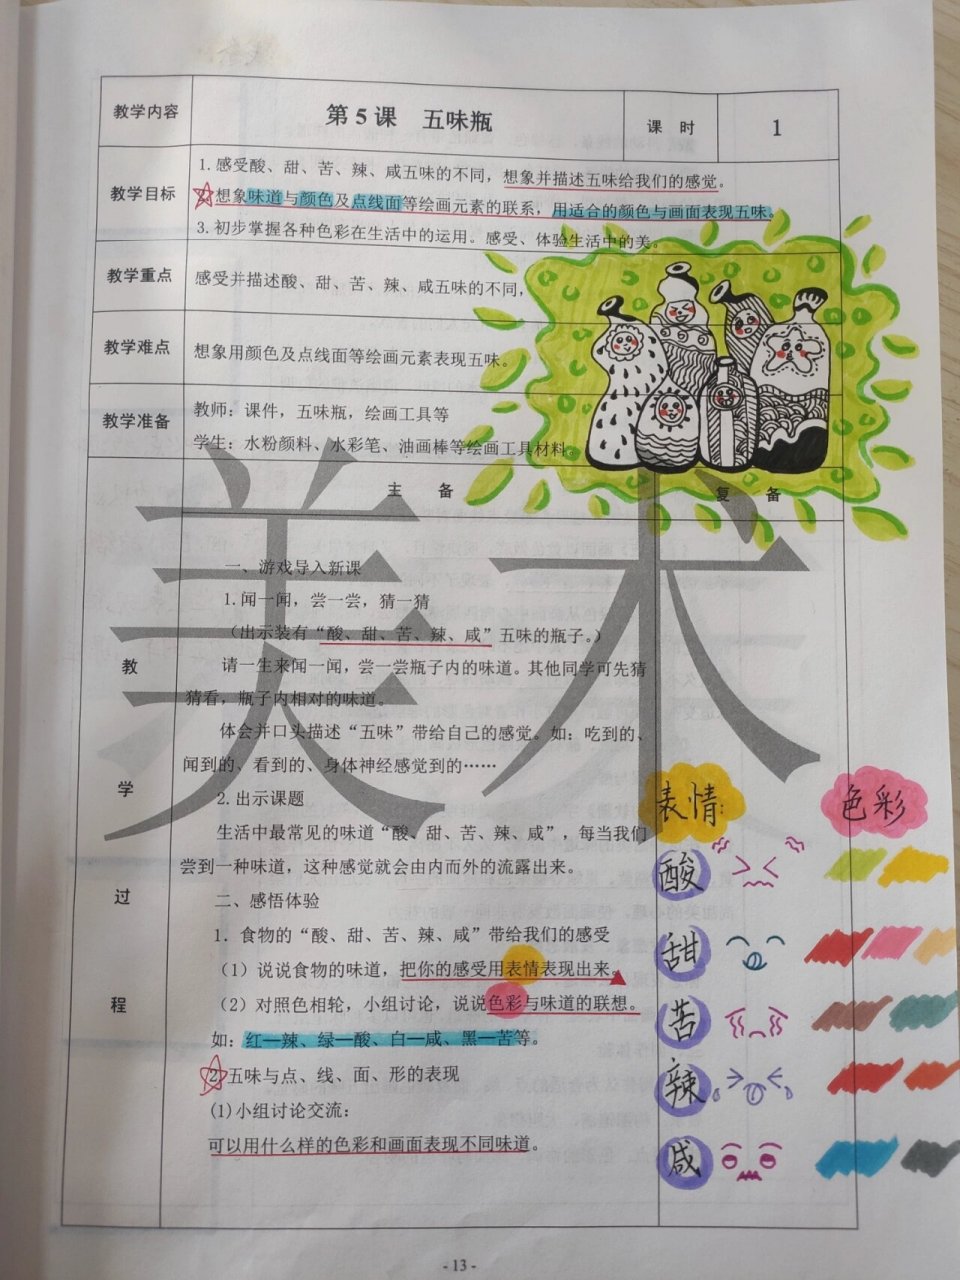 教学内容
第 5 课 五味瓶
课 时
1
教学目标
1. 感受酸、甜、苦、辣、咸五味的不同，想象并描述五味给我们的感觉。
2. 想象味道与颜色及点线面等绘画元素的联系，用适合的颜色与画面表现五味。
3. 初步掌握各种色彩在生活中的运用。感受、体验生活中的美。
教学重点
感受并描述酸、甜、苦、辣、咸五味的不同，
教学难点
想象用颜色及点线面等绘画元素表现五味。
教学准备
教师：课件，五味瓶，绘画工具等
学生：水粉颜料、水彩笔、油画棒等绘画工具材料。
主 备
复 备
美术
教学过程
一、游戏导入新课
1.闻一闻，尝一尝，猜一猜
（出示装有“酸、甜、苦、辣、咸”五味的瓶子。）
请一生来闻一闻，尝一尝瓶子内的味道。其他同学可先猜
猜看，瓶子内相对的味道。
体会并口头描述“五味”带给自己的感觉。如：吃到的、
闻到的、看到的、身体神经感觉到的……
2.出示课题
生活中最常见的味道“酸、甜、苦、辣、咸”，每当我们
尝到一种味道，这种感觉就会由内而外的流露出来。
二、感悟体验
1．食物的“酸、甜、苦、辣、咸”带给我们的感受
（1）说说食物的味道，把你的感受用表情表现出来。
（2）对照色相轮，小组讨论，说说色彩与味道的联想。
如：红—辣、绿—酸、白—咸、黑—苦等。
2.五味与点、线、面、形的表现
(1)小组讨论交流：
可以用什么样的色彩和画面表现不同味道。
表情：
色彩
酸
甜
苦
辣
咸
- 13 -